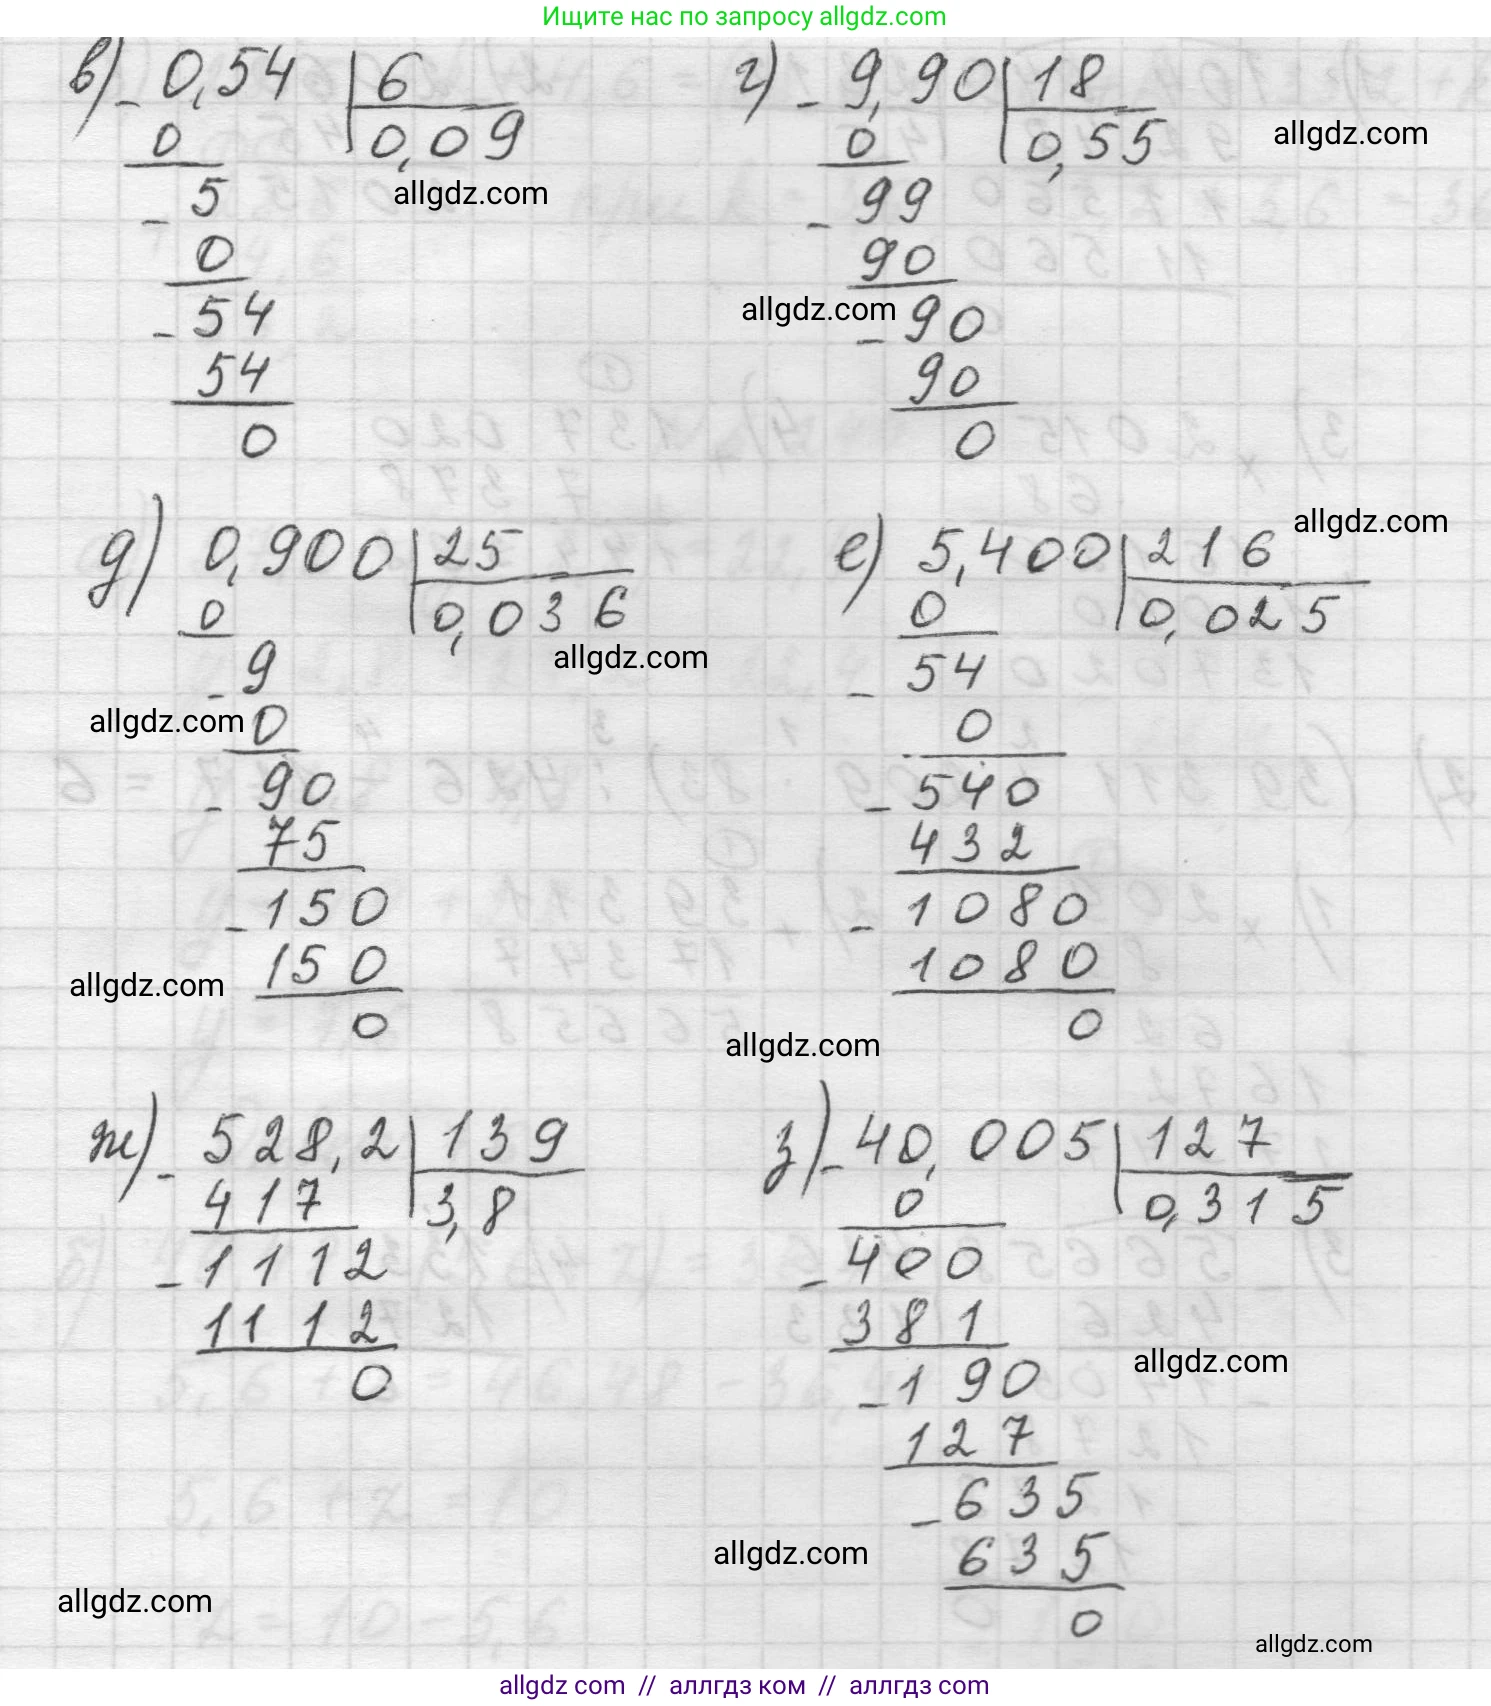 Ищите нас по запросу allgdz.com
в) - 0,54 | 6
0 | 0,09
allgdz.com
- 5
0
- 54
54
0
г) - 9,90 | 18
0 | 0,55
allgdz.com
- 99
90
allgdz.com
- 90
90
0
д) 0,900 | 25
0 | 0,036
allgdz.com
- 9
allgdz.com
0
- 90
75
- 150
150
allgdz.com
0
е) 5,400 | 216
allgdz.com
0 | 0,025
- 54
0
- 540
432
- 1080
1080
0
allgdz.com
ж) - 528,2 | 139
417 | 3,8
- 1112
1112
0
allgdz.com
з) - 40,005 | 127
0 | 0,315
- 400
381
allgdz.com
- 190
127
- 635
allgdz.com
635
0
allgdz.com
allgdz com // аллгдз ком // аллгдз com